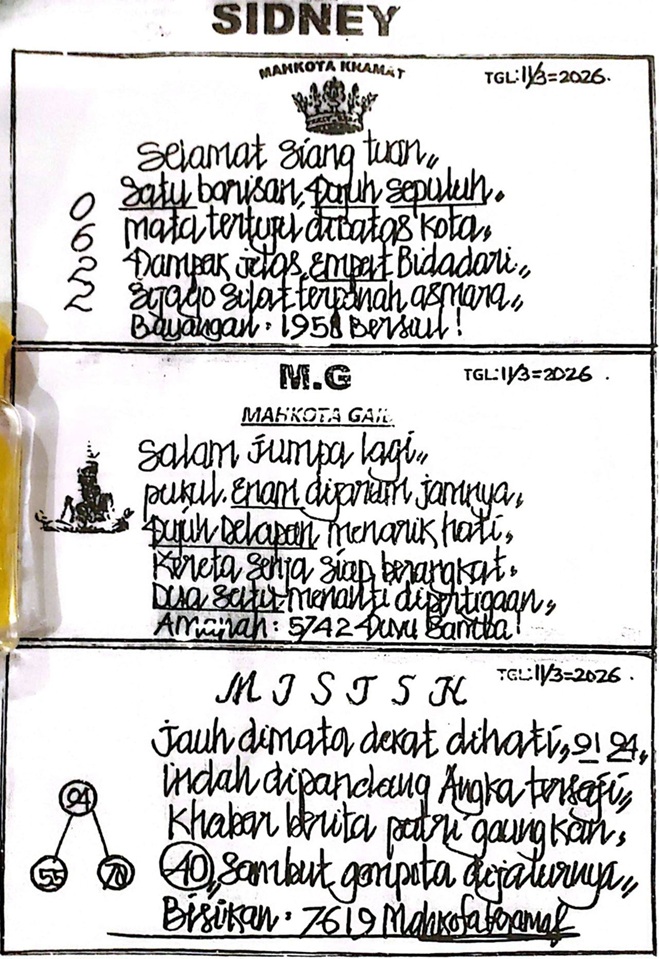 SIDNEY
MAHKOTA KRAMAT
TGL: 11/3=2026.
Selamat Siang tuan,,
Satu barisan, tujuh sepuluh.
mata tertuju dibatas kota,
Tampak jelas, empat Bidadari,,
Sijago silat terpanah asmara,,
Bayangan: 1958 Bersul!
0
6
2
2
M.G
TGL: 11/3=2026.
MAHKOTA GAIB
Salam Jumpa lagi,,
pukul. Enam dijarum jamnya,
tujuh Delapan menarik hati,
Kereta Senja siap berangkat.
Dua Satu menanti dipertigaan,,
Amanah: 5742
MISTIK
TGL: 11/3=2026.
Jauh dimata dekat dihati,, 91 94,
Indah dipandang Angka tersaji,,
Khabar berita patri gaungkan,
40,, Sambut gempita dijalurnya,,
Bisikan: 7619 Mahkota keramat
94
55 70